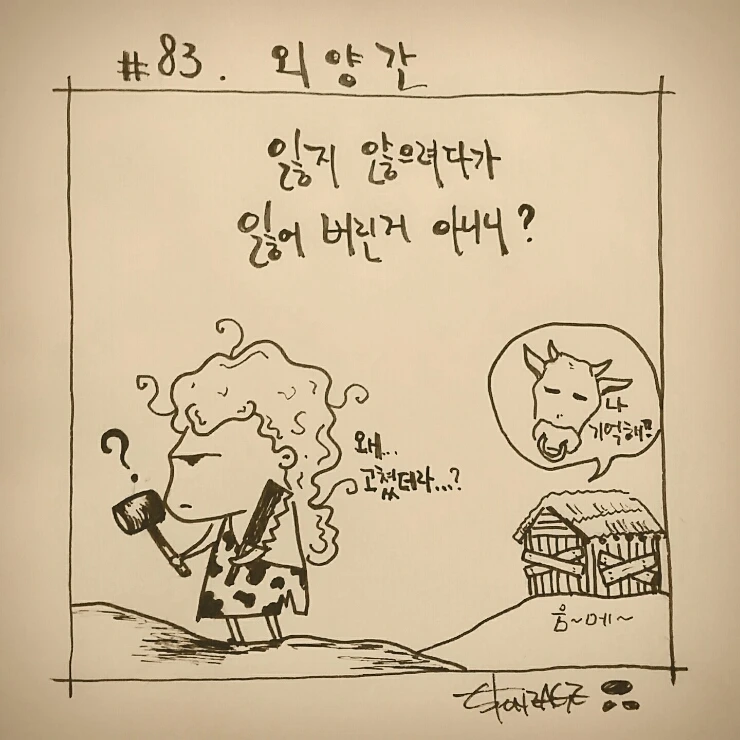 #83. 외양간
잃지 않으려다가
잃어 버린거 아니니?
?
왜...
고쳤더라...?
나
기억해?
음~메~
STONZAGE